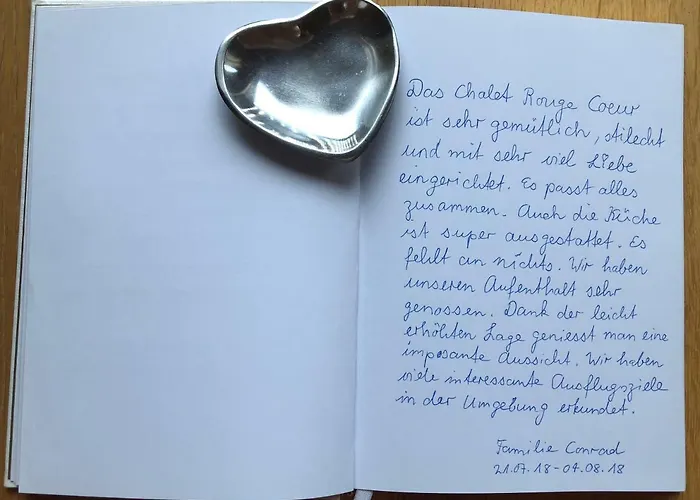 Das Chalet Rouge Coeur
ist sehr gemütlich, stilecht
und mit sehr viel Liebe
eingerichtet. Es passt alles
zusammen. Auch die Küche
ist super ausgestattet. Es
fehlt an nichts. Wir haben
unseren Aufenthalt sehr
genossen. Dank der leicht
erhöhten Lage geniesst man eine
imposante Aussicht. Wir haben
viele interessante Ausflugsziele
in der Umgebung erkundet.
Familie Conrad
21.07.18-04.08.18